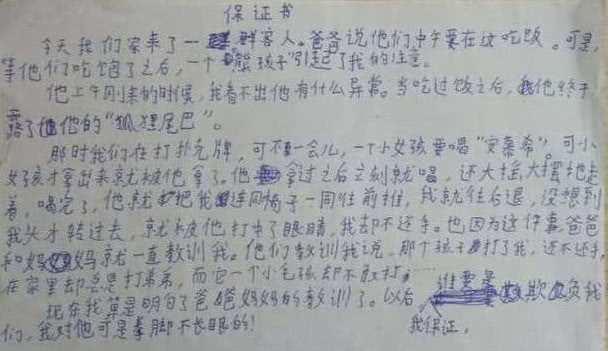 保证书
今天我们家来了一群客人。爸爸说他们中午要在这吃饭。可是,
等他们吃饱了之后,一个"熊孩子"引起了我的注意。
他上午刚来的时候,我看不出他有什么异常。当吃过饭之后,他终于
露了他的"狐狸尾巴"。
那时我们在打扑克牌,可不一会儿,一个小女孩要唱"安慕希"。可小
女孩才拿出来就被他拿了。他拿过之后立刻就喝,还大摇大摆地走
着,喝完了,他就把我连同椅子一同往前推,我就往后退,没想到
我头才转过去,就被他打中了眼睛,我却不还手。也因为这件事,爸爸
和妈妈就一直教训我。他们教训我说,那个孩子打了我,还不还手,
在家里却总是打弟弟,而它一个小毛孩却不敢打。…
现在我算是明白了爸爸妈妈的教训了。以后,我保证,谁要是敢欺负我
们,我对他可是拳脚不长眼的!